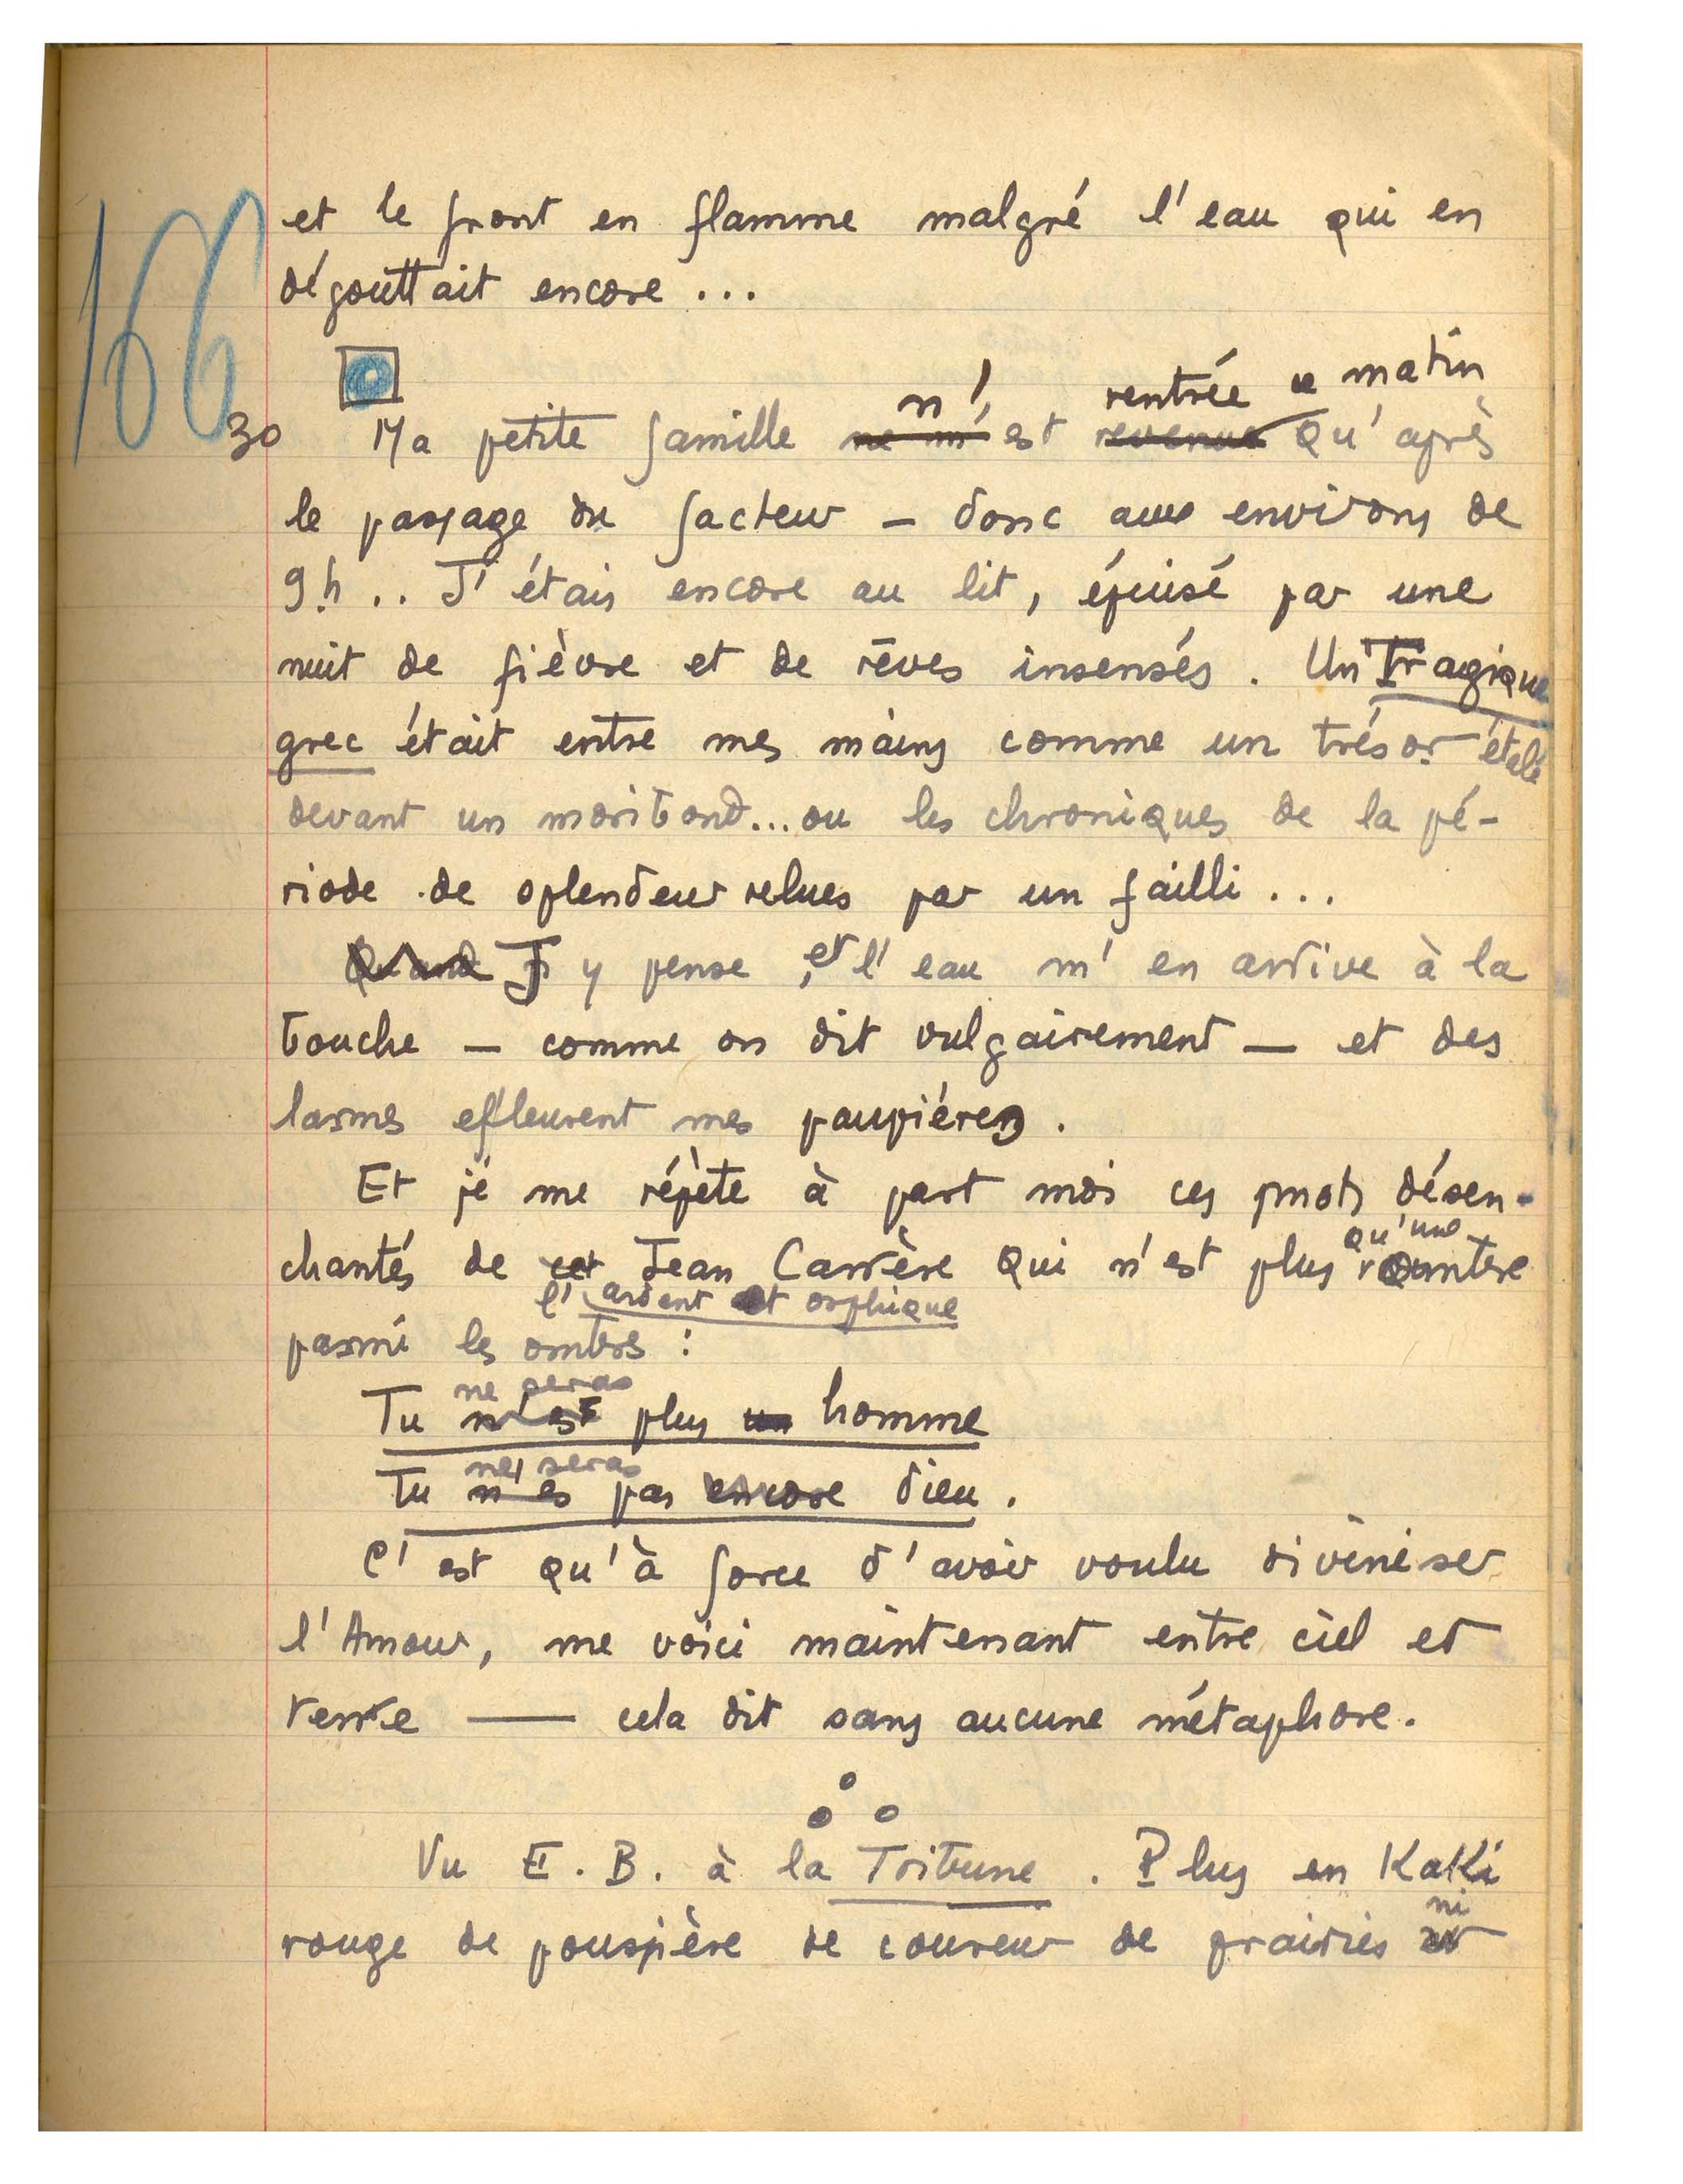 166
et le front en flamme malgré l'eau qui en
dégouttait encore ...
n' rentrée ce matin
30 Ma petite famille ne m'est revenue qu'après
le passage du facteur — donc aux environs de
9h .. J'étais encore au lit, épuisé par une
nuit de fièvre et de rêves insensés. Un Tragique
grec était entre mes mains comme un trésor étalé
devant un moribond... ou les chroniques de la pé-
riode de splendeur relues par un failli ...
Quand J'y pense, et l'eau m'en arrive à la
bouche — comme on dit vulgairement — et des
larmes effleurent mes paupières.
Et je me répète à part moi ces mots désen-
qu'une
chantés de cet Jean Carrère qui n'est plus ombre
l'ardent et orphique
parmi les ombres :
ne seras
Tu n'est plus un homme
ne seras
Tu n'es pas encore dieu.
C'est qu'à force d'avoir voulu diviniser
l'Amour, me voici maintenant entre ciel et
terre — cela dit sans aucune métaphore.
Vu E. B. à la Tribune. Plus en Kaki
ni
rouge de poussière de coureur de prairies